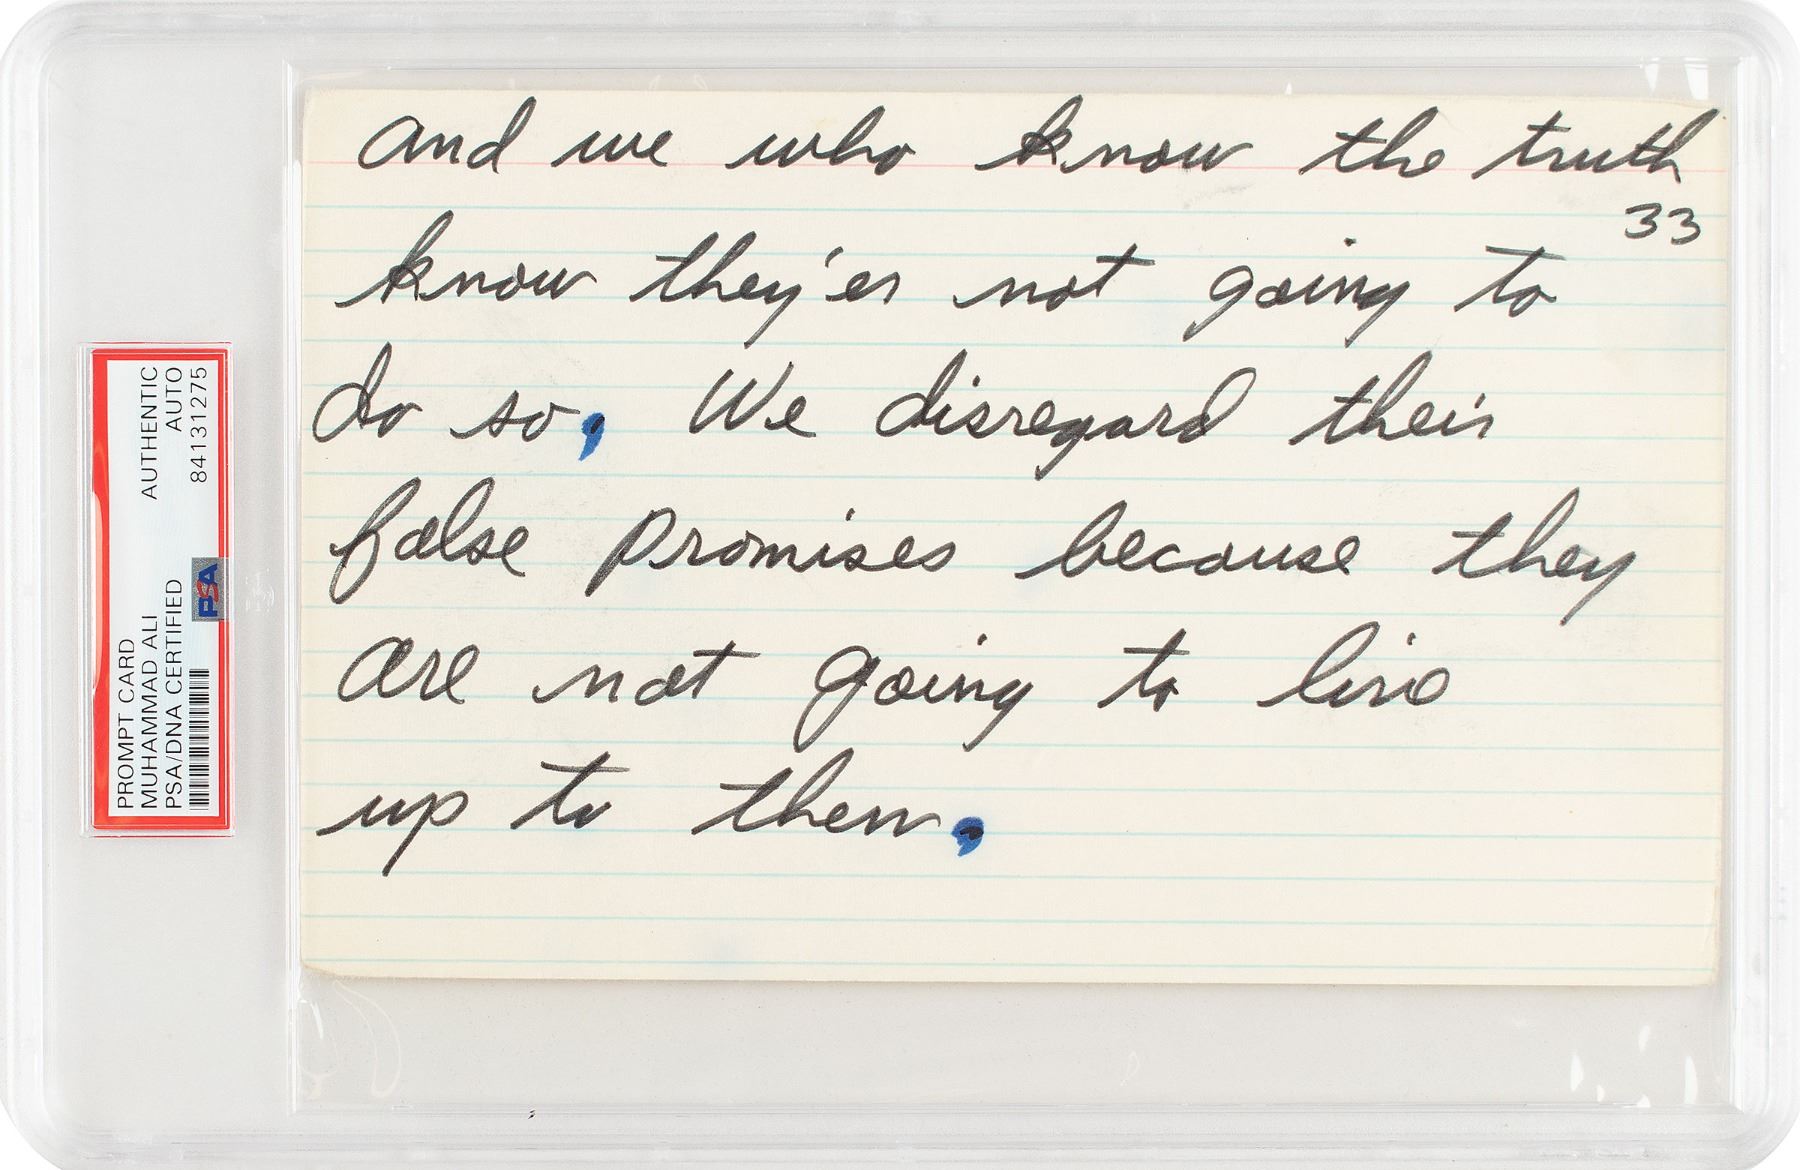 and we who know the truth
33
know they'er not going to
do so, We disregard their
false promises because they
are not going to live
up to them,
PROMPT CARD
MUHAMMAD ALI
PSA/DNA CERTIFIED
AUTHENTIC
AUTO
84131275
PSA